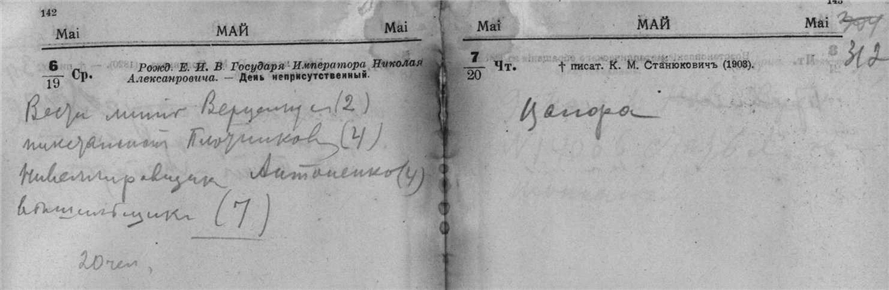 142
Mai МАЙ Mai
6/19 Ср. Рожд. Е. И. В Государя Императора Николая
Алексанровича. — День неприсутственный.
Вести линию Верценлуса (2)
пикетажист Плотников (4)
Нивеллировщик Антоненко (4)
(7)
20 чел.
143
304
312
Mai МАЙ Mai
7/20 Чт. † писат. К. М. Станюковичъ (1903).
Цапора